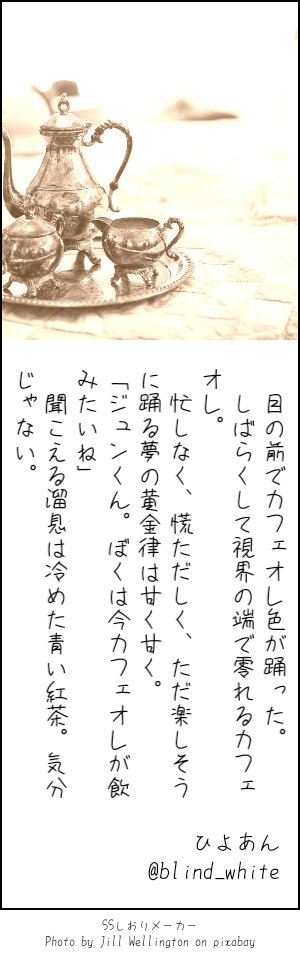 目の前でカフェオレ色が踊った。
　しばらくして視界の端で零れるカフェ
オレ。
　忙しなく、慌ただしく、ただ楽しそう
に踊る夢の黄金律は甘く甘く。
「ジュンくん。ぼくは今カフェオレが飲
みたいね」
　聞こえる溜息は冷めた青い紅茶。気分
じゃない。
ひよあん
@blind_white
SSしおりメーカー
Photo by Jill Wellington on pixabay